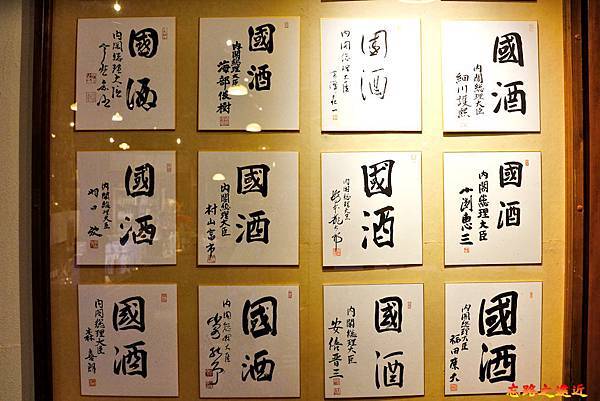 國酒
内閣総理大臣
國酒
内閣総理大臣
海部俊樹
國酒
内閣総理大臣
國酒
内閣総理大臣
細川護熙
國酒
内閣総理大臣
羽田孜
國酒
内閣総理大臣
村山富市
國酒
内閣総理大臣
國酒
内閣総理大臣
小渕恵三
國酒
内閣総理大臣
森喜朗
國酒
内閣総理大臣
國酒
内閣総理大臣
安倍晋三
國酒
内閣総理大臣
福田康夫
忘路之遠近